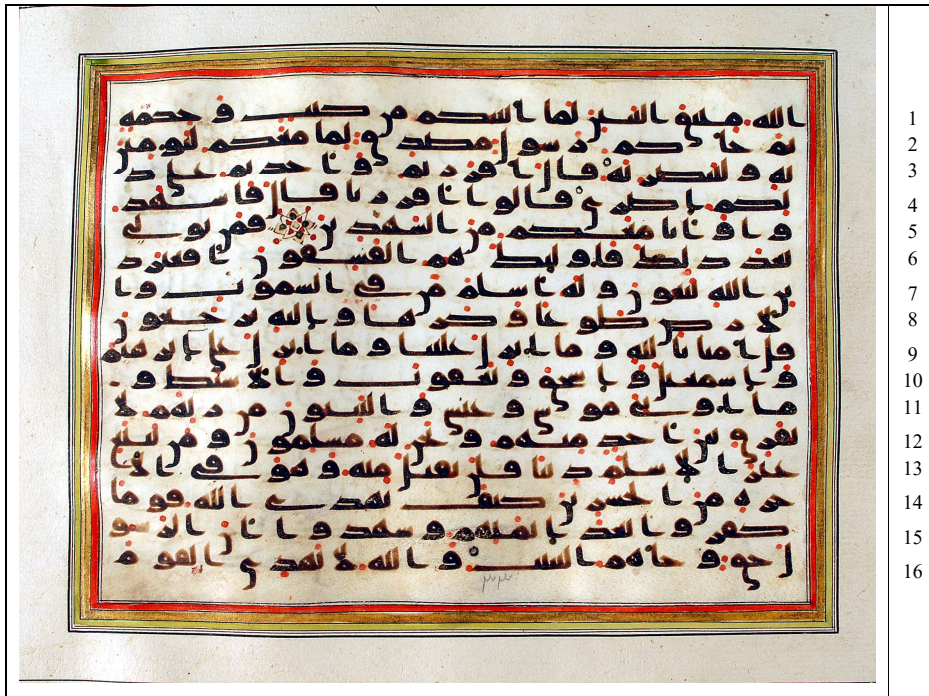 1 الله ميثق النبين لما اتيتكم من كتب و حكمة
2 ثم جاكم رسول مصدق لما معكم لتومنن
3 به و لتنصرنه قال اقررتم و اخذتم على ذ
4 لكم اصري قالوا اقررنا قال فاشهد
5 وا و انا معكم من الشهدين فمن تولى
6 بعد ذلك فاولىك هم الفسقون افغير د
7 ين الله يبغون و له اسلم من في السموت و ا
8 لارض طوعا و كرها و اليه يرجعون
9 قل امنا بالله و ما انزل علينا و ما انزل على ابرهيم
10 و اسمعيل و اسحق و يعقوب و الاسبط و
11 ما اوتي موسى و عيسى و النبيون من ربهم لا
12 نفرق بين احد منهم و نحن له مسلمون و من يبتغ
13 غير الاسلم دينا فلن يقبل منه و هو في الا
14 خرة من الخسرين كيف يهدي الله قوما
15 كفروا بعد ايمنهم و شهدوا ان الرسو
16 ل حق و جاهم البينت و الله لا يهدي القوم